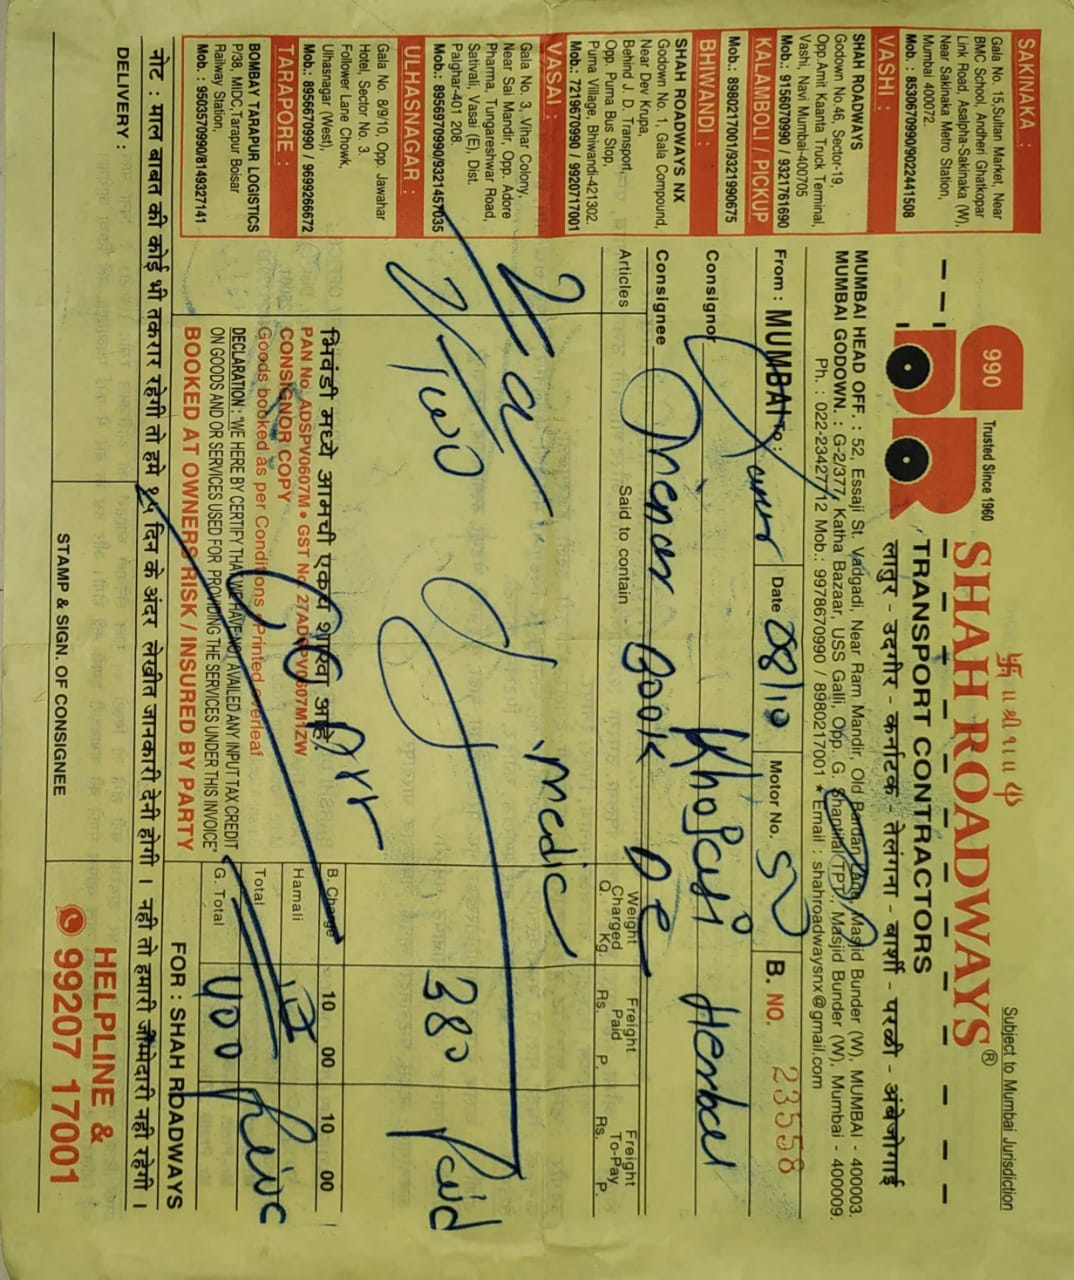 卐 ॥ श्री ॥
Subject to Mumbai Jurisdiction
990
Trusted Since 1960
SHAH ROADWAYS®
TRANSPORT CONTRACTORS
लातुर - उदगीर - कर्नाटक - तेलंगना - बार्शी - परळी - अंबेजोगाई
MUMBAI HEAD OFF. : 52, Essaji St. Vadgadi, Near Ram Mandir, Old Bardan Lane, Masjid Bunder (W), MUMBAI - 400003.
MUMBAI GODOWN. : G-2/377, Katha Bazaar, USS Galli, Opp. G. Shantilal TPT., Masjid Bunder (W), Mumbai - 400009.
Ph. : 022-23427712 Mob.: 9978670990 / 8980217001 * Email : shahroadwaysnx@gmail.com
SAKINAKA :
Gala No. 15,Sultan Market, Near
BMC School, Andheri Ghatkopar
Link Road, Asalpha-Sakinaka (W),
Near Sakinaka Metro Station,
Mumbai 400072.
Mob.: 8530670990/9022441508
VASHI :
SHAH ROADWAYS
Godown No.46, Sector-19,
Opp.Amit Kaanta Truck Terminal,
Vashi, Navi Mumbai-400705
Mob.: 9156070990 / 9321761690
KALAMBOLI / PICKUP
Mob.: 8980217001/9321990675
BHIWANDI :
SHAH ROADWAYS NX
Godown No. 1, Gala Compound,
Near Dev Krupa,
Behind J. D. Transport,
Opp. Puma Bus Stop,
Purna Village, Bhiwandi-421302.
Mob.: 7219670990 / 9920717001
VASAI :
Gala No. 3, Vihar Colony,
Near Sai Mandir, Opp. Adore
Pharma, Tungareshwar Road,
Sativali, Vasai (E), Dist.
Palghar-401 208.
Mob.: 8956970990/9321457035
ULHASNAGAR :
Gala No. 8/9/10, Opp. Jawahar
Hotel, Sector No. 3.
Follower Lane Chowk,
Ulhasnagar (West),
Mob.: 8956670990 / 9699266672
TARAPORE :
BOMBAY TARAPUR LOGISTICS
P/38, MIDC,Tarapur Boisar
Railway Station,
Mob. : 9503570990/8149327141
From : MUMBAI To : Date 08/10 Motor No. B. NO. 23558
Consignor Khopcsi Herbal
Consignee Book De
Articles Said to contain Weight Charged Q. Kg. Freight Paid Rs. P. Freight To-Pay Rs. P.
medic 380 Paid
भिवंडी मध्ये आमची एकच शाखा आहे.
PAN No. ADSPV0607M • GST No. 27ADSPV0607M1ZW
CONSIGNOR COPY
Goods booked as per Conditions Printed overleaf
DECLARATION : "WE HERE BY CERTIFY THAT WE HAVE NOT AVAILED ANY INPUT TAX CREDIT
ON GOODS AND OR SERVICES USED FOR PROVIDING THE SERVICES UNDER THIS INVOICE"
BOOKED AT OWNERS RISK / INSURED BY PARTY
B. Charge 10 00 10 00
Hamali
Total
G. Total 400
FOR : SHAH ROADWAYS
नोट : माल बाबत की कोई भी तकरार रहेगी तो हमे १५ दिन के अंदर लेखीत जानकारी देनी होगी । नही तो हमारी जीम्मेदारी नही रहेगी ।
DELIVERY :
STAMP & SIGN. OF CONSIGNEE
HELPLINE &
99207 17001